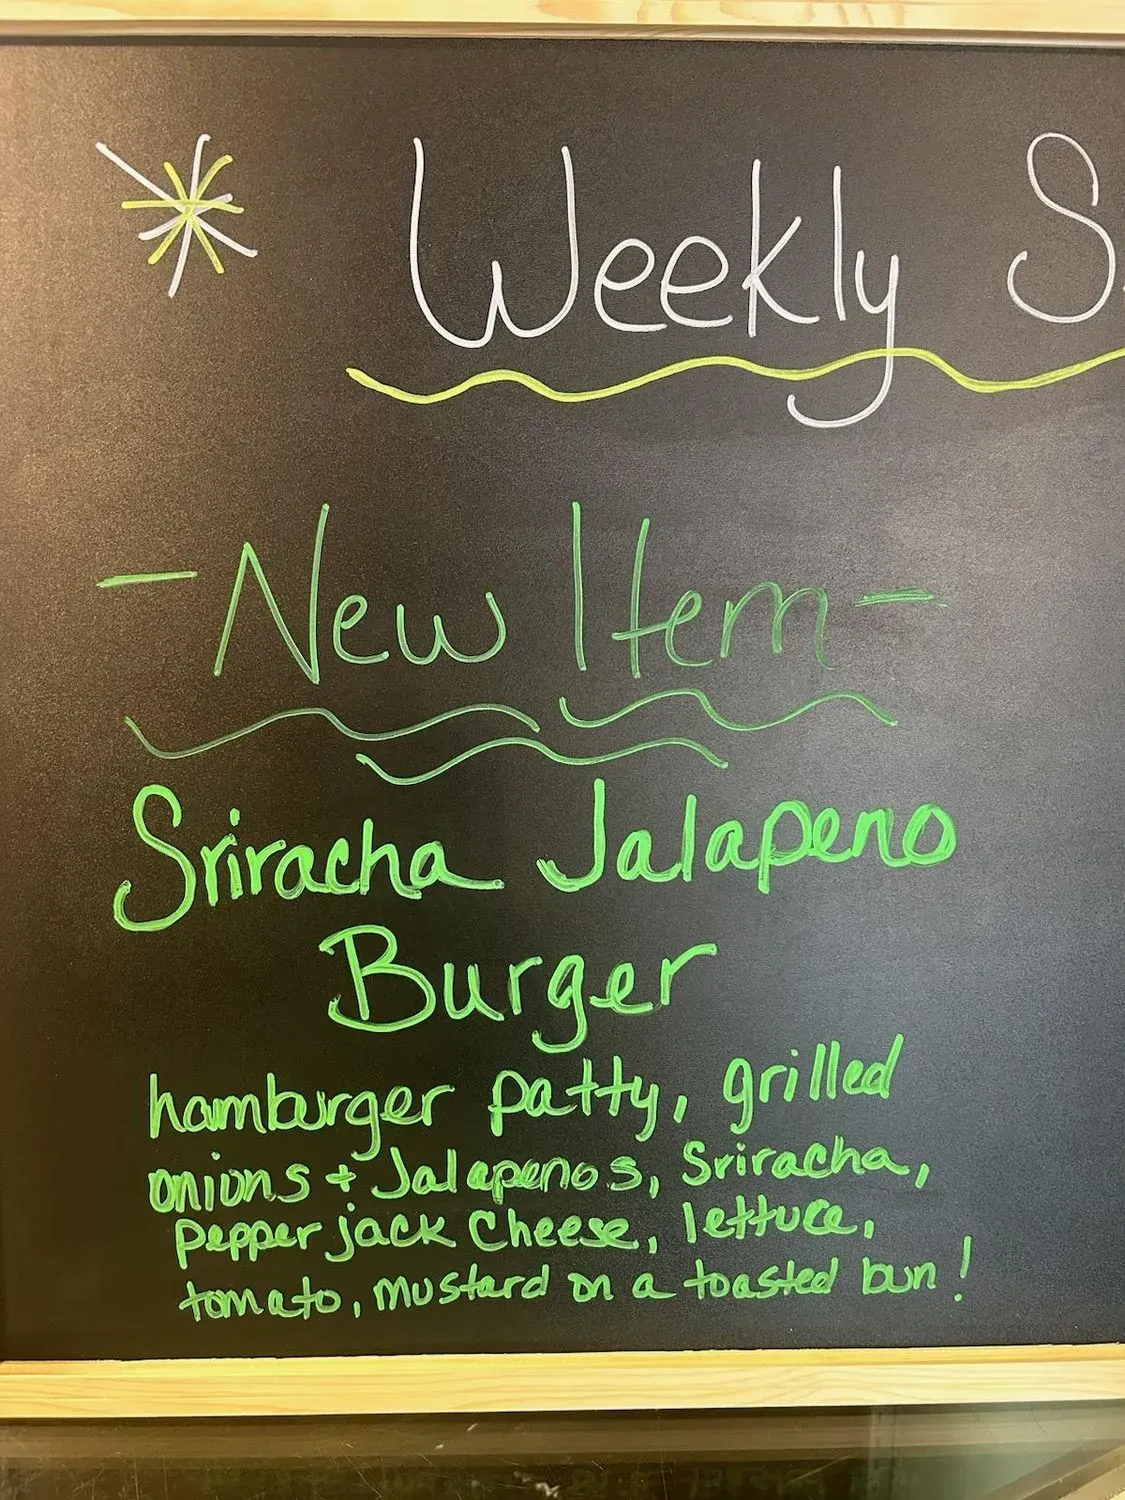 Weekly S
- New Item -
Sriracha Jalapeno
Burger
hamburger patty, grilled
onions + Jalapenos, Sriracha,
pepper jack cheese, lettuce,
tomato, mustard on a toasted bun!